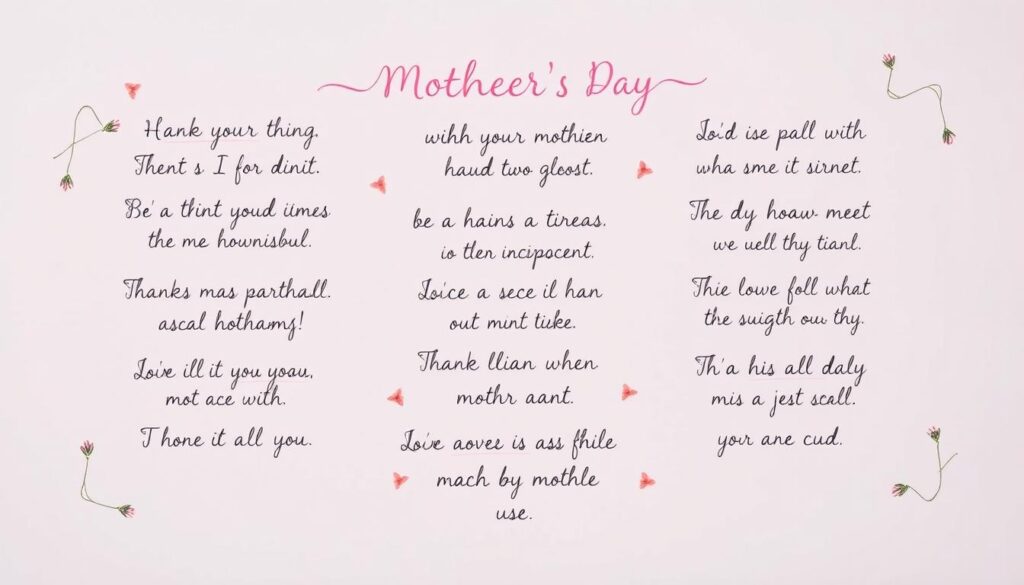 Motheer's Day
Hank your thing.
Thent s I for dinit.
Be'a thint youd iimes
the me hownisbul.
Thanks mas parthall.
ascal hothamg!
Loive ill it you yoau,
mot ace with.
Thone it all you.
wihh your mothien
haud two gloost.
be a hains a tireas.
io tlen incipocent.
Loice a sece il han
out mint tiske.
Thank llian when
mothr aant.
Loive aovez is ass fhile
mach by mothle
use.
Loi'd ise pall with
wha sme it sirnet.
The dy hoaw meet
we uell thy tianl.
Thie lowe foll what
the suigth ou thy.
Th'a his all daly
mis a jest scall.
your ane cud.